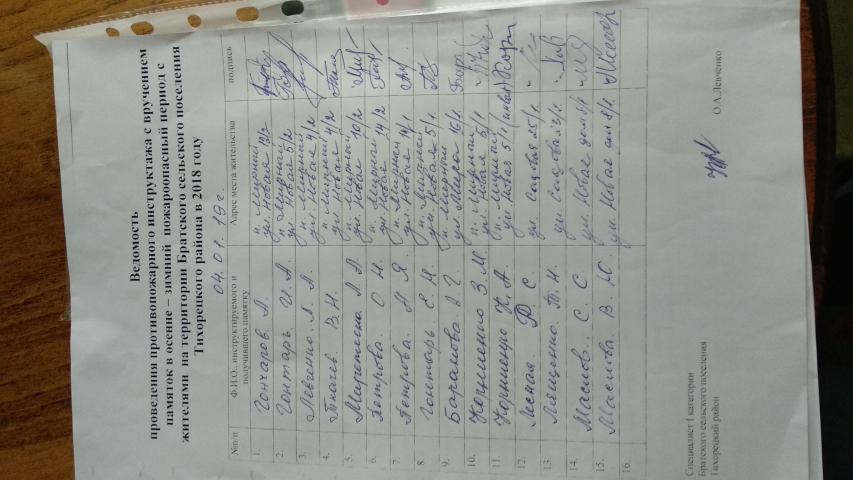 Ведомость
проведения противопожарного инструктажа с вручением
памяток в осенне – зимний пожароопасный период с
жителями на территории Братского сельского поселения
Тихорецкого района в 2018 году
04.01.19г.
№п/п Ф.И.О., инструктируемого и получившего памятку Адрес места жительства подпись
1. Гончаров. А. п. Мирный ул. Новая
2. Гонтарь. И. А. п. Мирный ул. Новая 5/2
3. Левченко. А. А. п. Мирный ул. Новая 4/2
4. Ткачев. В. Н. п. Мирный ул. Новая 4/2
5. Л. А. п. Мирный ул. Новая 10/2
6. Петрова. О. Н. п. Мирный ул. Новая 14/2
7. Петрова. Н. Я. п. Мирный ул. Новая 14/1
8. Гонтарь. Е. Н. п. Мирный ул. Новая 5/1
9. Баранова. А. Г. п. Мирный ул. Мира 16/1
10. Корниенко З. М п. Мирный ул. Новая 5/1
11. Корниенко К. А. п. Мирный ул. Новая 5/1
12. Лесная. Р. С. ул. Садовая 25/1
13. Лященко. Т. Н. ул. Садовая
14. Маслов. С. С ул. Новая дом 8/1
15. Маслова. В. Ю. ул. Новая дом 8/1
16.
Специалист I категории
Братского сельского поселения
Тихорецкий район О.А.Левченко